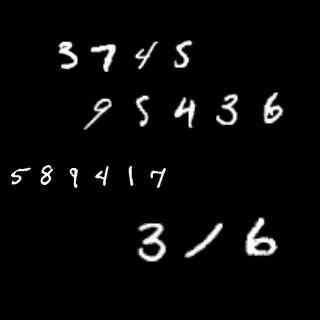 3745
95436
589417
316